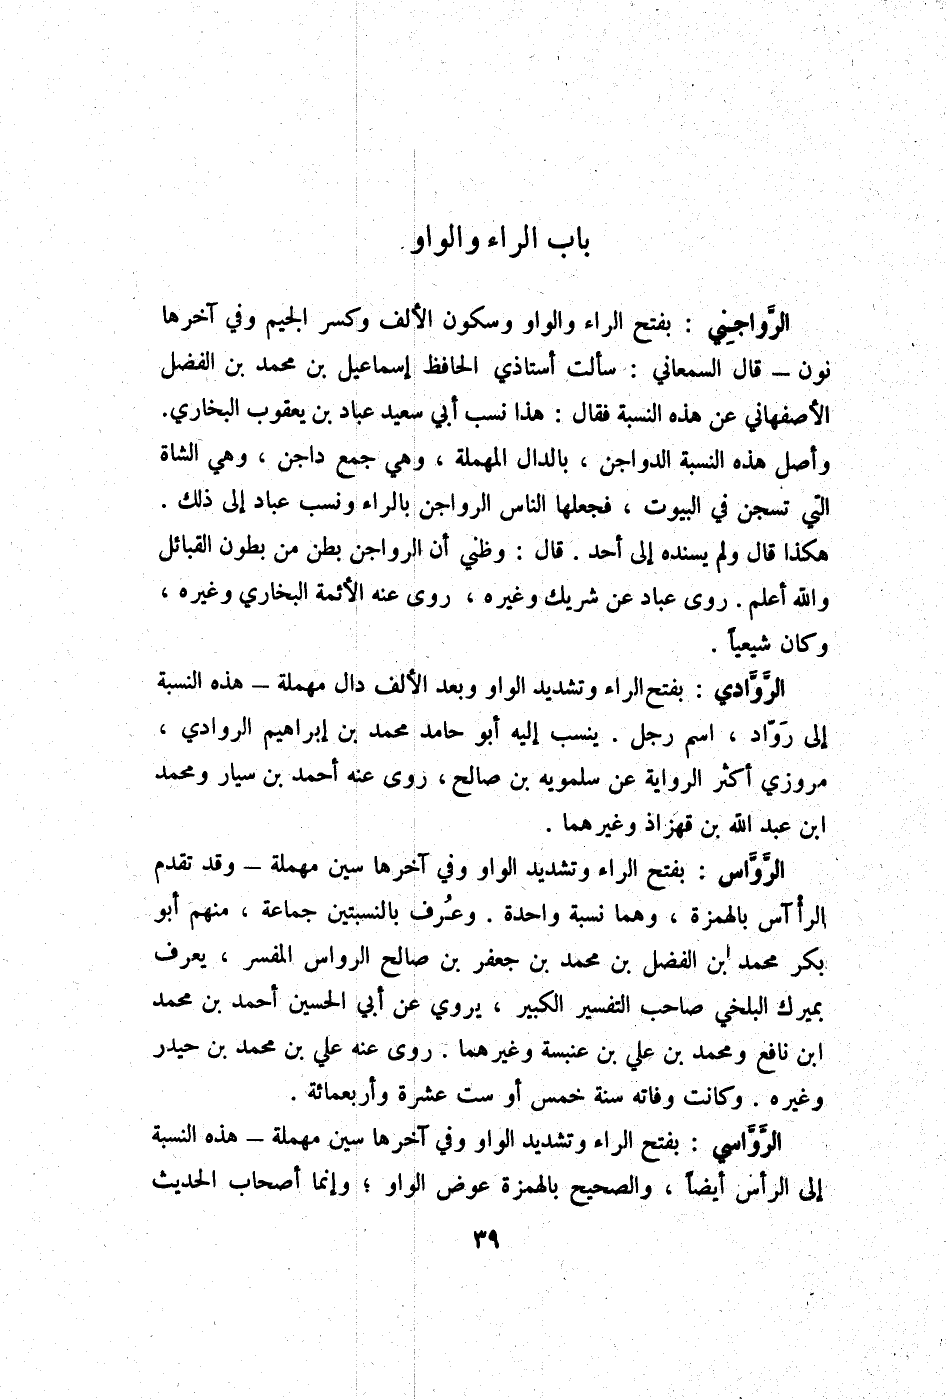 باب الراء والواو
الرَّواجِني : بفتح الراء والواو وسكون الألف وكسر الجيم وفي آخرها
نون – قال السمعاني : سألت أستاذي الحافظ إسماعيل بن محمد بن الفضل
الأصفهاني عن هذه النسبة فقال : هذا نسب أبي سعيد عباد بن يعقوب البخاري.
وأصل هذه النسبة الدواجن ، بالدال المهملة ، وهي جمع داجن ، وهي الشاة
التي تسجن في البيوت ، فجعلها الناس الرواجن بالراء ونسب عباد إلى ذلك .
هكذا قال ولم يسنده إلى أحد . قال : وظني أن الرواجن بطن من بطون القبائل
والله أعلم . روى عباد عن شريك وغيره ، روى عنه الأئمة البخاري وغيره ،
وكان شيعياً .
الرَّوَّادي : بفتح الراء وتشديد الواو وبعد الألف دال مهملة – هذه النسبة
إلى رَوّاد ، اسم رجل . ينسب إليه أبو حامد محمد بن إبراهيم الروادي ،
مروزي أكثر الرواية عن سلمويه بن صالح، روى عنه أحمد بن سيار ومحمد
ابن عبد الله بن قهزاذ وغيرهما .
الرَّوَّاس : بفتح الراء وتشديد الواو وفي آخرها سين مهملة – وقد تقدم
الرأآس بالهمزة ، وهما نسبة واحدة . وعُرف بالنسبتين جماعة ، منهم أبو
بكر محمد ابن الفضل بن محمد بن جعفر بن صالح الرواس المفسر ، يعرف
بميرك البلخي صاحب التفسير الكبير ، يروي عن أبي الحسين أحمد بن محمد
ابن نافع ومحمد بن علي بن عنبسة وغيرهما . روى عنه علي بن محمد بن حيدر
وغيره . وكانت وفاته سنة خمس أو ست عشرة وأربعمائة .
الرَّوَّاسي : بفتح الراء وتشديد الواو وفي آخرها سين مهملة – هذه النسبة
إلى الرأس أيضاً ، والصحيح بالهمزة عوض الواو ؛ وإنما أصحاب الحديث
٣٩